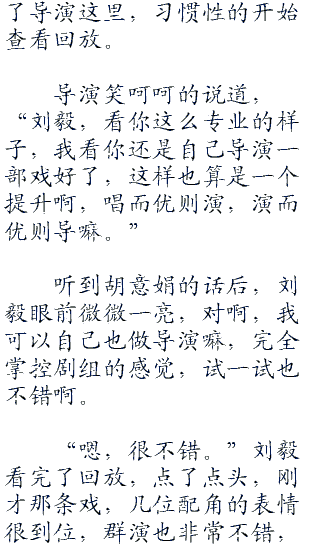 了导演这里，习惯性的开始
查看回放。
导演笑呵呵的说道，
“刘毅，看你这么专业的样
子，我看你还是自己导演一
部戏好了，这样也算是一个
提升啊，唱而优则演，演而
优则导嘛。”
听到胡意娟的话后，刘
毅眼前微微一亮，对啊，我
可以自己也做导演嘛，完全
掌控剧组的感觉，试一试也
不错啊。
“嗯，很不错。”刘毅
看完了回放，点了点头，刚
才那条戏，几位配角的表情
很到位，群演也非常不错，